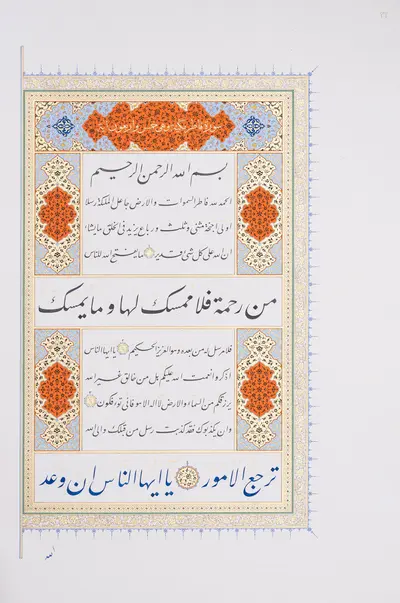 سورة فاطر مكية وهي خمس و اربعون آية
بسم الله الرحمن الرحيم
الحمد لله فاطر السموات والارض جاعل الملئكة رسلا
اولى اجنحة مثنى وثلث و رباع يزيد فى الخلق ما يشاء
ان الله على كل شىء قدير ما يفتح الله للناس
من رحمة فلا ممسك لها و ما يمسك
فلا مرسل له من بعده و هو العزيز الحكيم يا ايها الناس
اذكروا نعمت الله عليكم هل من خالق غير الله
يرزقكم من السماء والارض لا اله الا هو فانى تؤفكون
وان يكذبوك فقد كذبت رسل من قبلك و الى الله
ترجع الامور يا ايها الناس ان وعد
الله